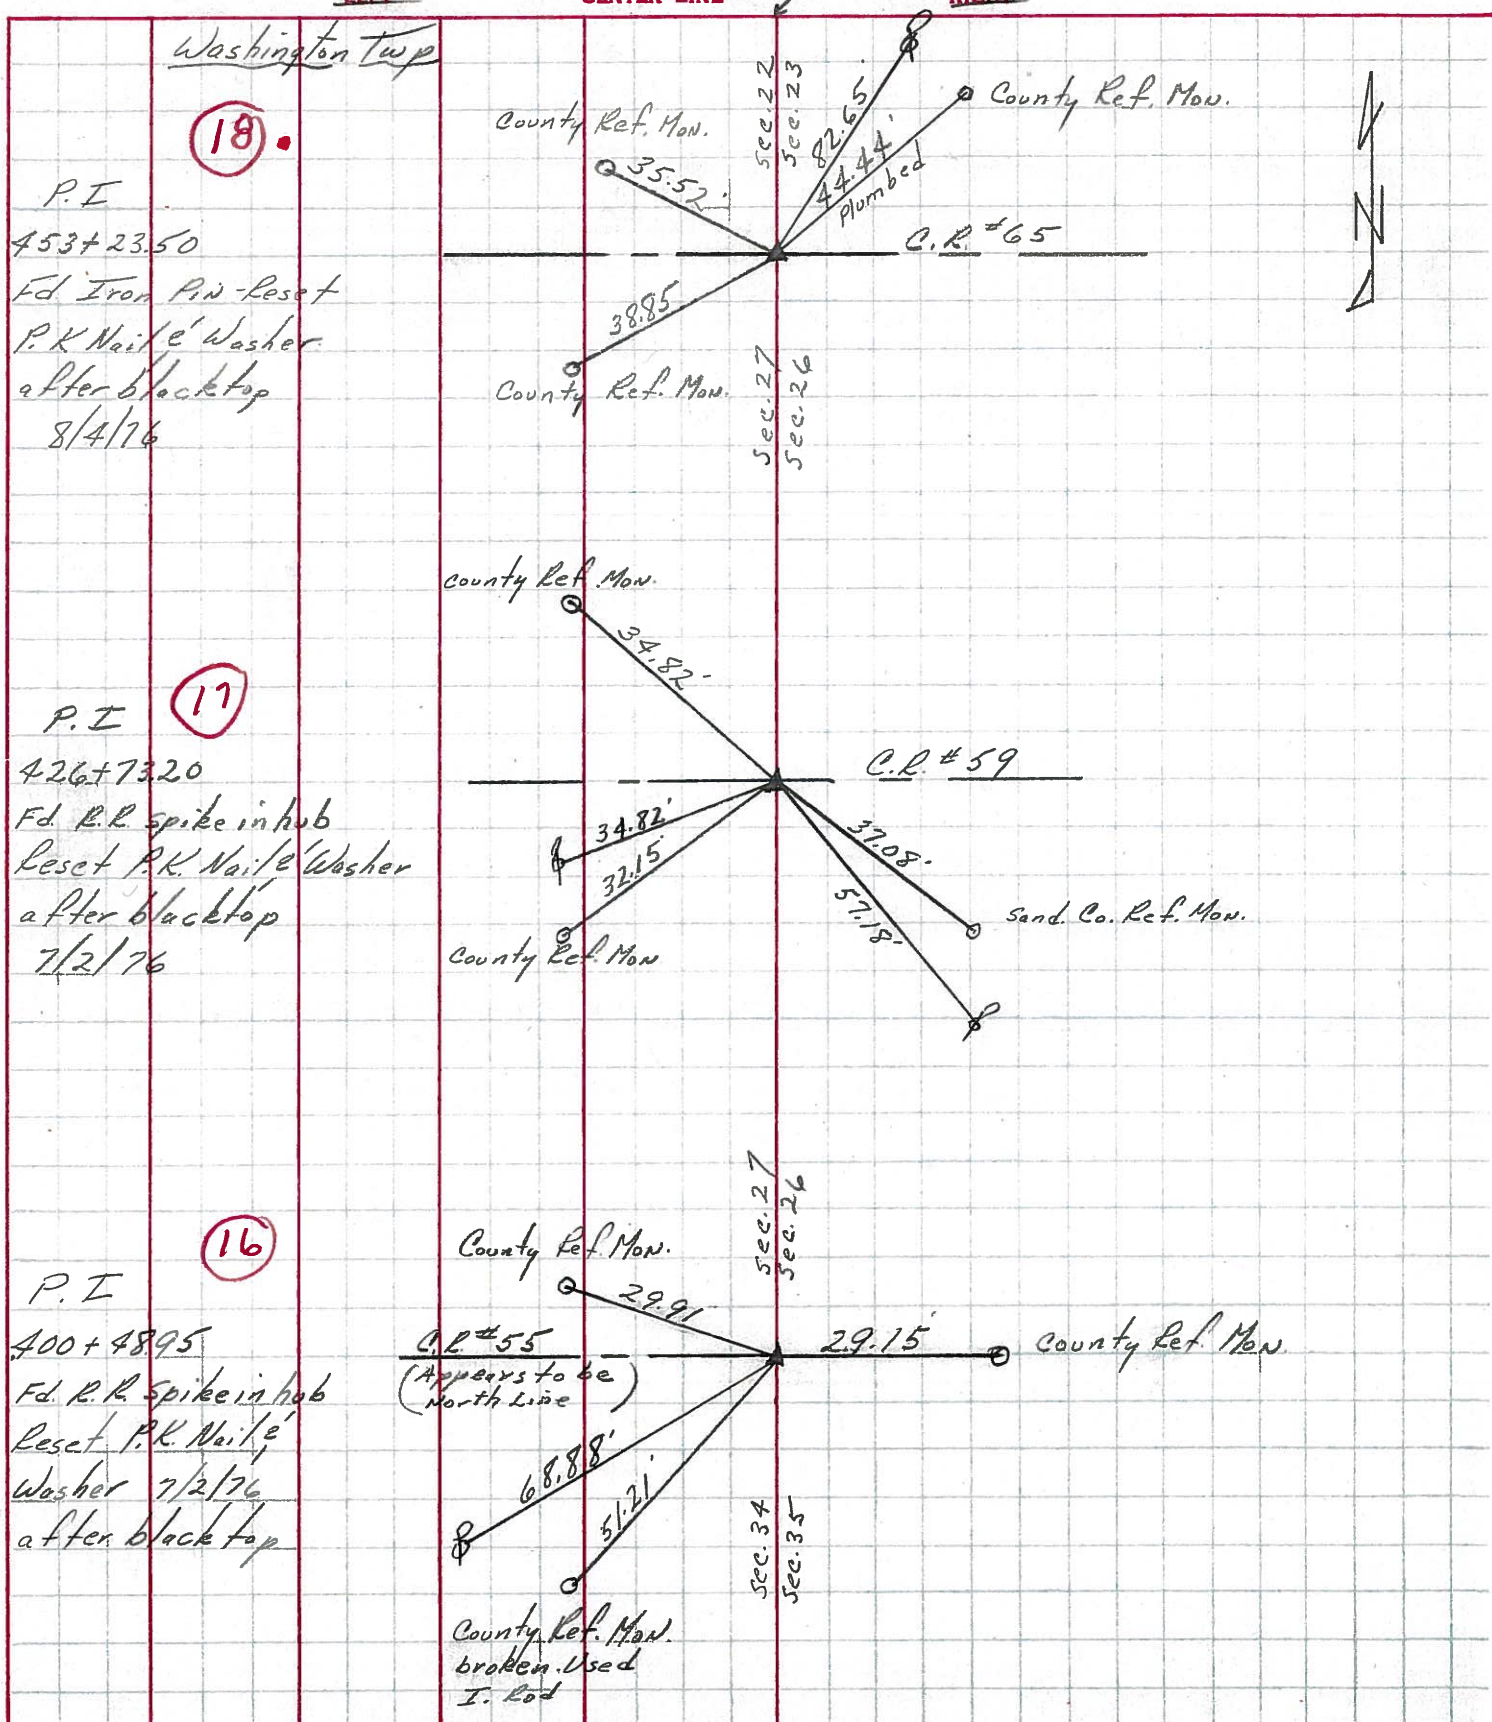 CENTER LINE
Washington Twp
18.
P.I
453+23.50
Fd. Iron Pin-Reset
P.K Nail & Washer
after blacktop
8/4/76
County Ref. Mon.
35.52'
Sec. 22
Sec. 23
82.65'
44.44'
Plumbed
County Ref. Mon.
C.R. #65
N
38.85
County Ref. Mon.
Sec. 27
Sec. 26
17
P.I
426+73.20
Fd. R.R. spike in hub
Reset P.K. Nail & Washer
after blacktop
7/2/76
County Ref. Mon.
34.82'
C.R. #59
34.82'
32.15'
County Ref. Mon
37.08'
57.18'
Sand. Co. Ref. Mon.
16
P.I
400+48.95
Fd. R.R. Spike in hub
Reset P.K. Nail &
Washer 7/2/76
after blacktop
Sec. 27
Sec. 26
County Ref. Mon.
29.91'
C.R. #55
(Appears to be
North Line)
29.15'
County Ref. Mon.
68.88'
51.21'
Sec. 34
Sec. 35
County Ref. Mon.
broken. Used
I. Rod